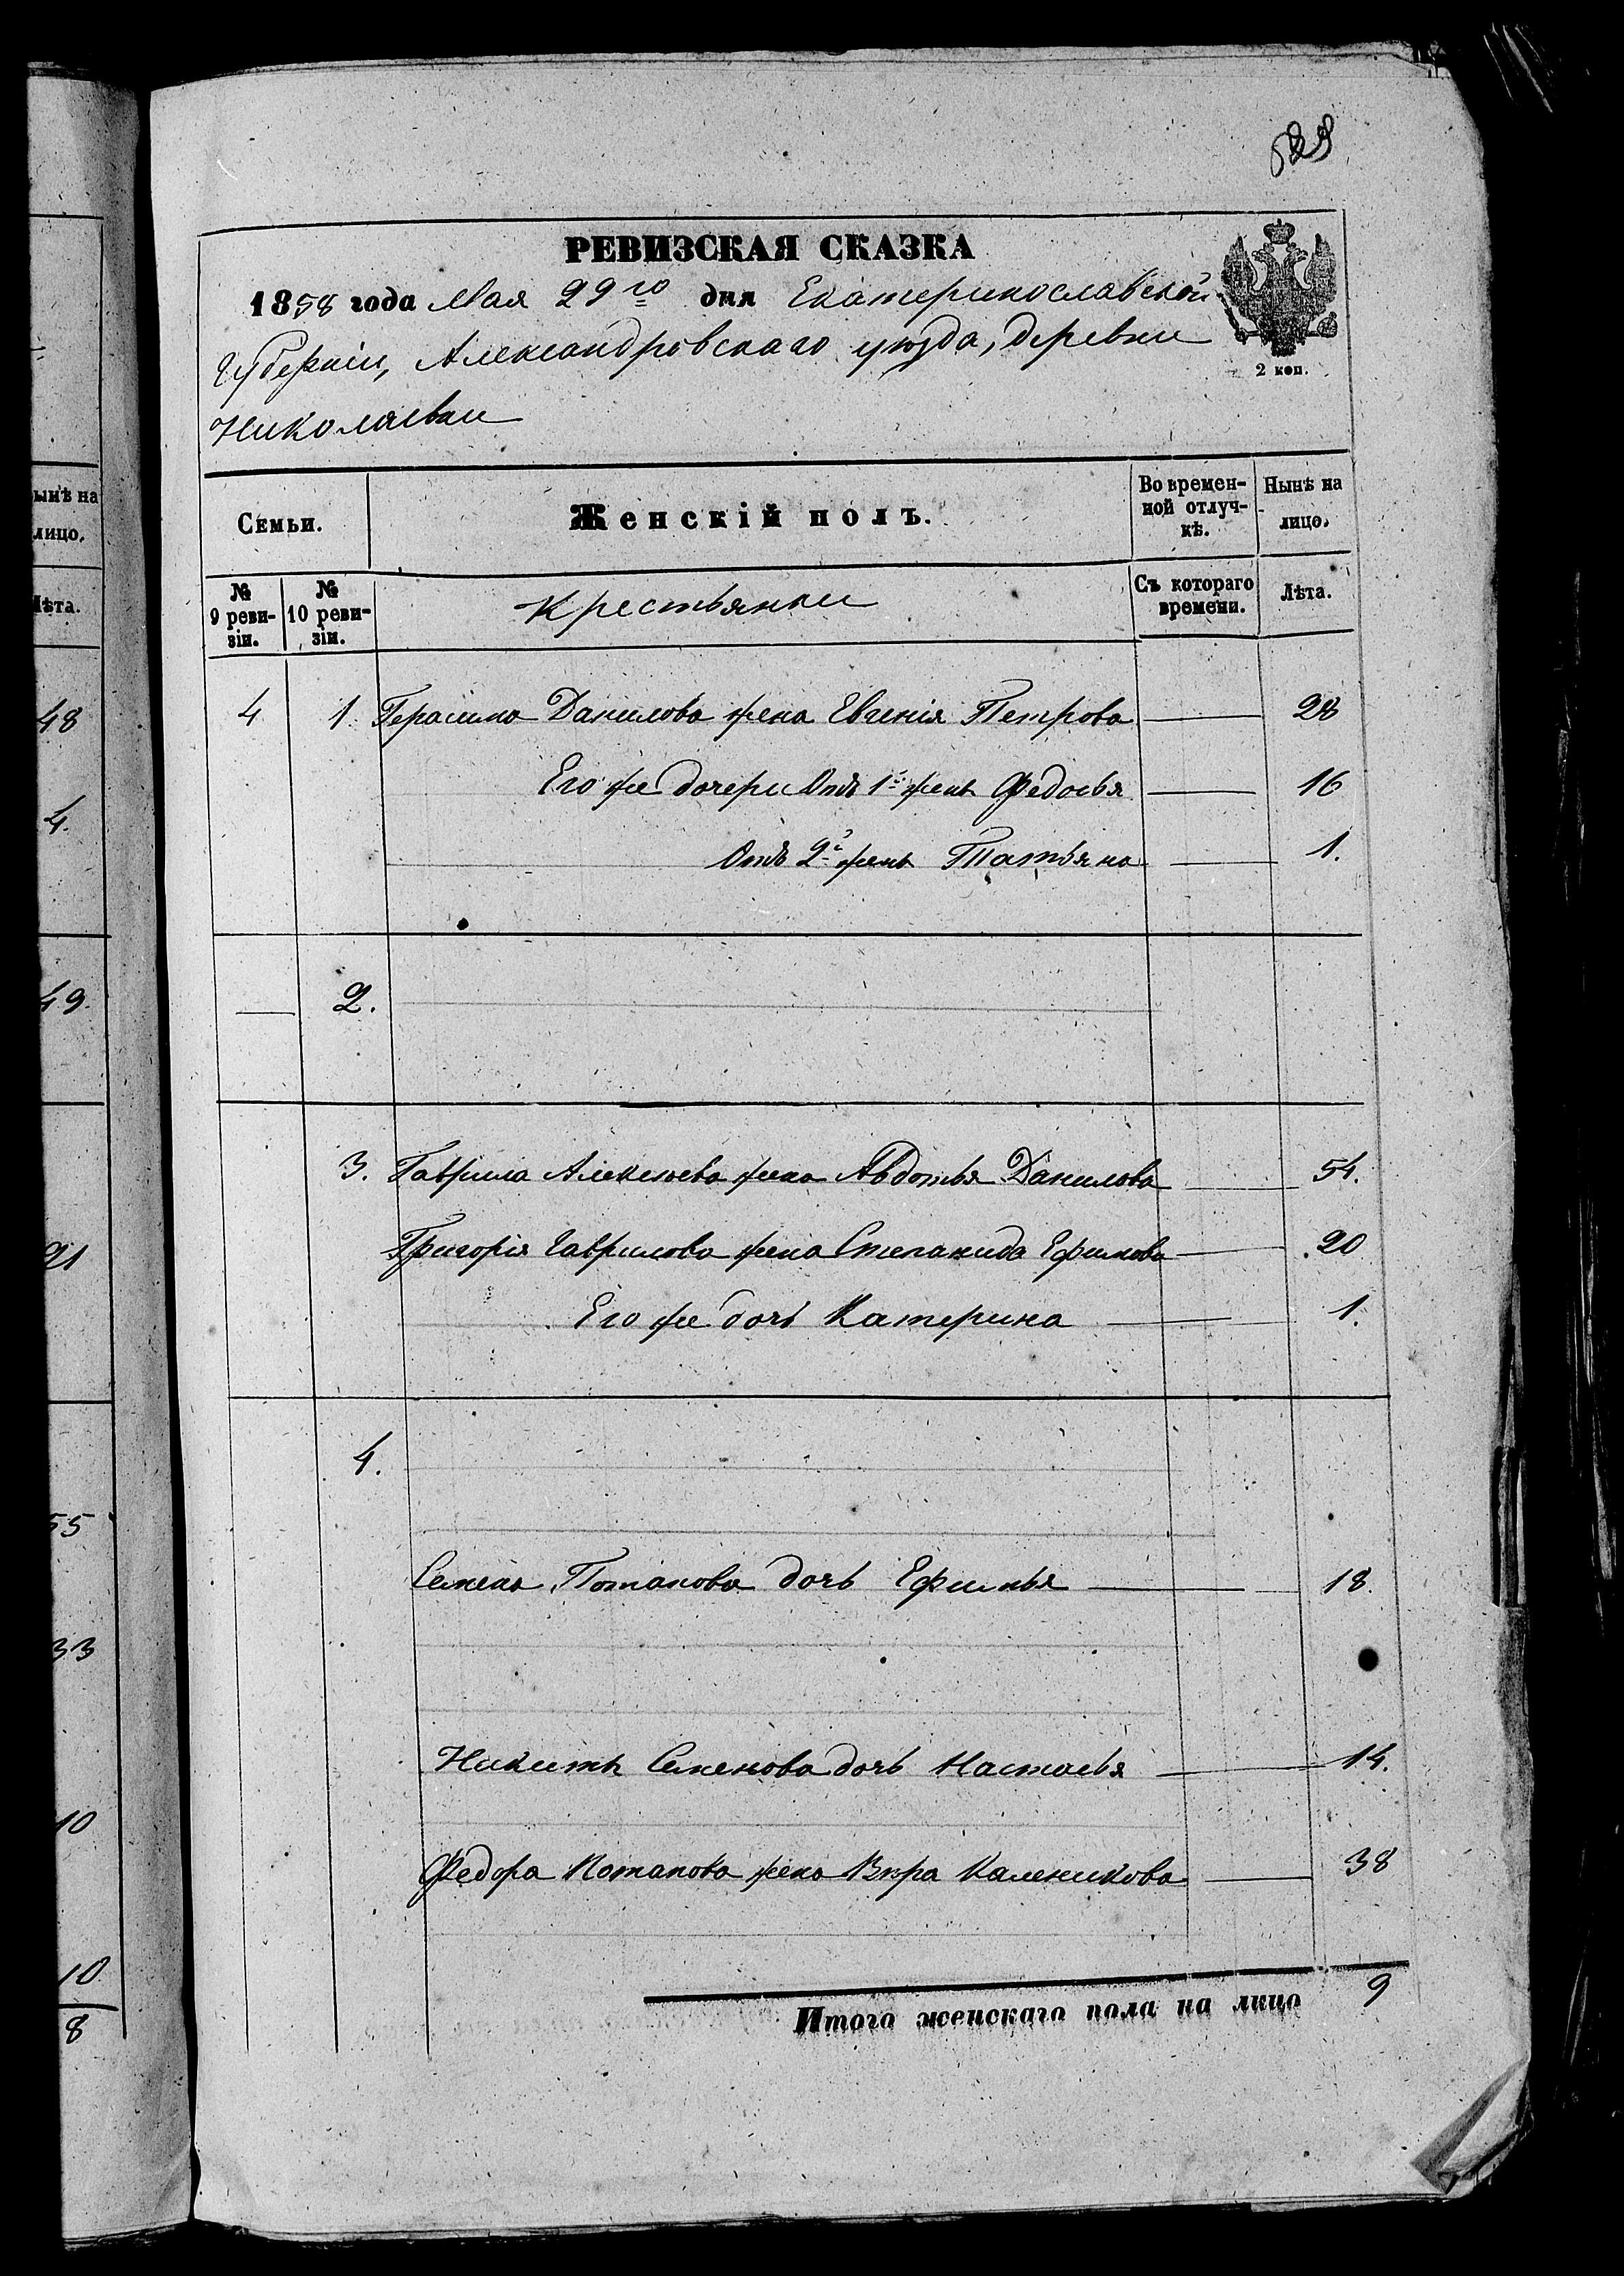 РЕВИЗСКАЯ СКАЗКА
1858 года Мая 29го дня Екатеринославской
Губерніи, Александровскаго уезда, деревни
Николаевки
2 коп.
Семьи.
Женскій полъ.
Во времен-
ной отлуч-
кѣ.
Нынѣ на
лицо.
№
9 реви-
зіи.
№
10 реви-
зіи.
Крестьянки
Съ котораго
времени.
Лѣта.
4 1. Герасима Данилова жена Евгенія Петрова 28
Его же дочери Отъ 1й жены Федосья 16
Отъ 2й жены Татьяна 1.
2.
3. Гаврила Алексеева жена Авдотья Данилова 54.
Григорія Гаврилова жена Степанида Ефимова 20
Его же дочь Катерина 1.
4.
Семена Потапова дочь Ефимья 18.
Никиты Семенова дочь Настасья 14.
Федора Потапова жена Вѣра Каленикова 38
Итого женскаго пола на лицо 9
ынѣ на
лицо.
Лѣта.
48
4.
49.
21
55
33
10
10
8